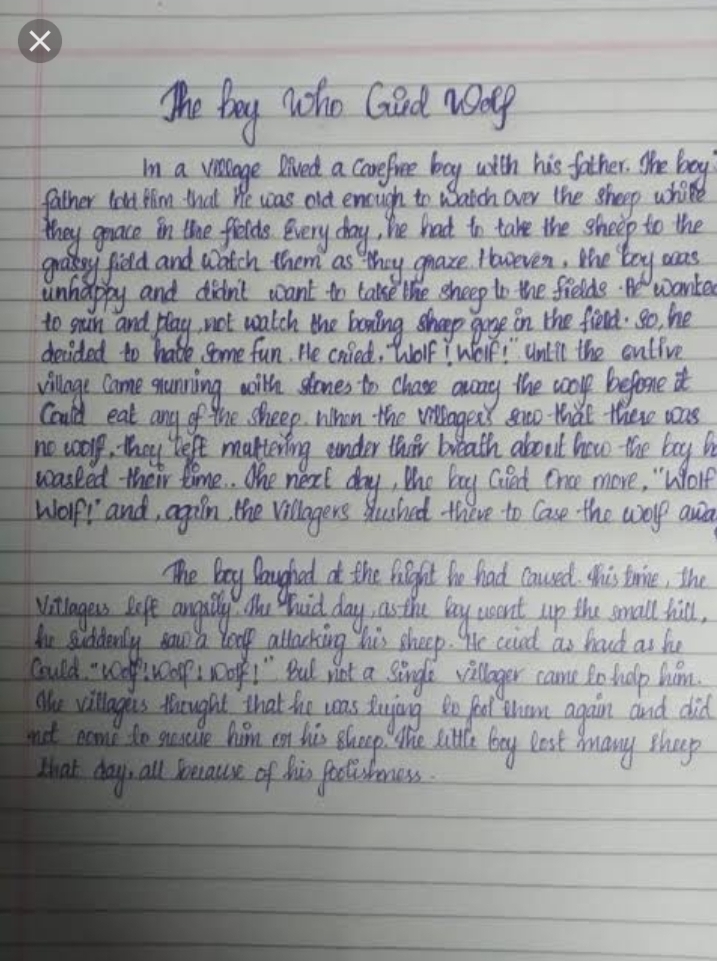 The boy Who Cried Wolf
In a village lived a carefree boy with his father. The boy'
father told him that he was old enough to watch over the sheep while
they graze in the fields. Every day, he had to take the sheep to the
grassy field and watch them as they graze. However, the boy was
unhappy and didn't want to take the sheep to the fields. He wanted
to run and play, not watch the boring sheep graze in the field. So, he
decided to have some fun. He cried, "Wolf! Wolf!" until the entire
village came running with stones to chase away the wolf before it
Could eat any of the sheep. When the villagers saw that there was
no wolf, they left muttering under their breath about how the boy h
wasted their time.. The next day, the boy Cried Once more, "Wolf
Wolf!" and, again, the villagers rushed there to Case the wolf awa
The boy laughed at the hight he had caused. This time, the
Villagers left angrily. The third day, as the boy went up the small hill,
he suddenly saw a wolf attacking his sheep. He cried as hard as he
Could, "Wolf! Wolf! Wolf!" But not a single villager came to help him.
The villagers thought that he was trying to fool them again and did
not come to rescue him or his sheep. The little boy lost many sheep
that day, all because of his foolishness.